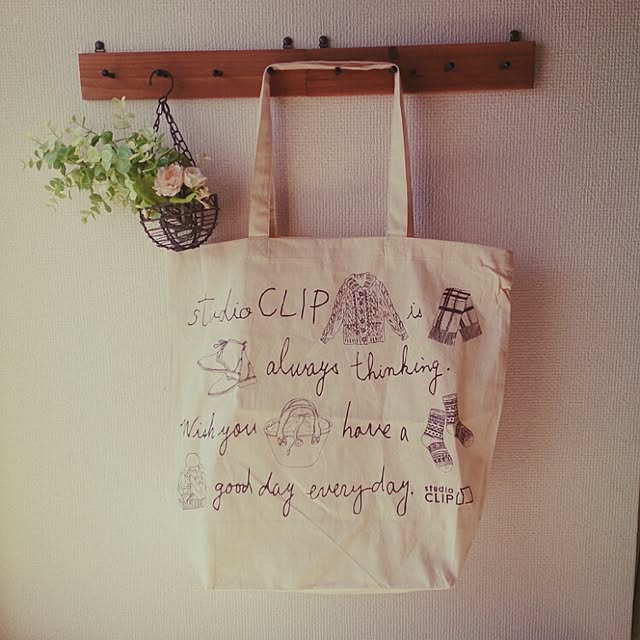 studio CLIP is
always thinking.
Wish you have a
good day everyday.
studio
CLIP